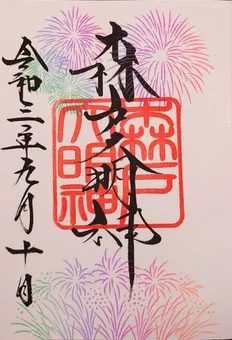 森戸大明神
森戸
大明神
令和二年九月十日